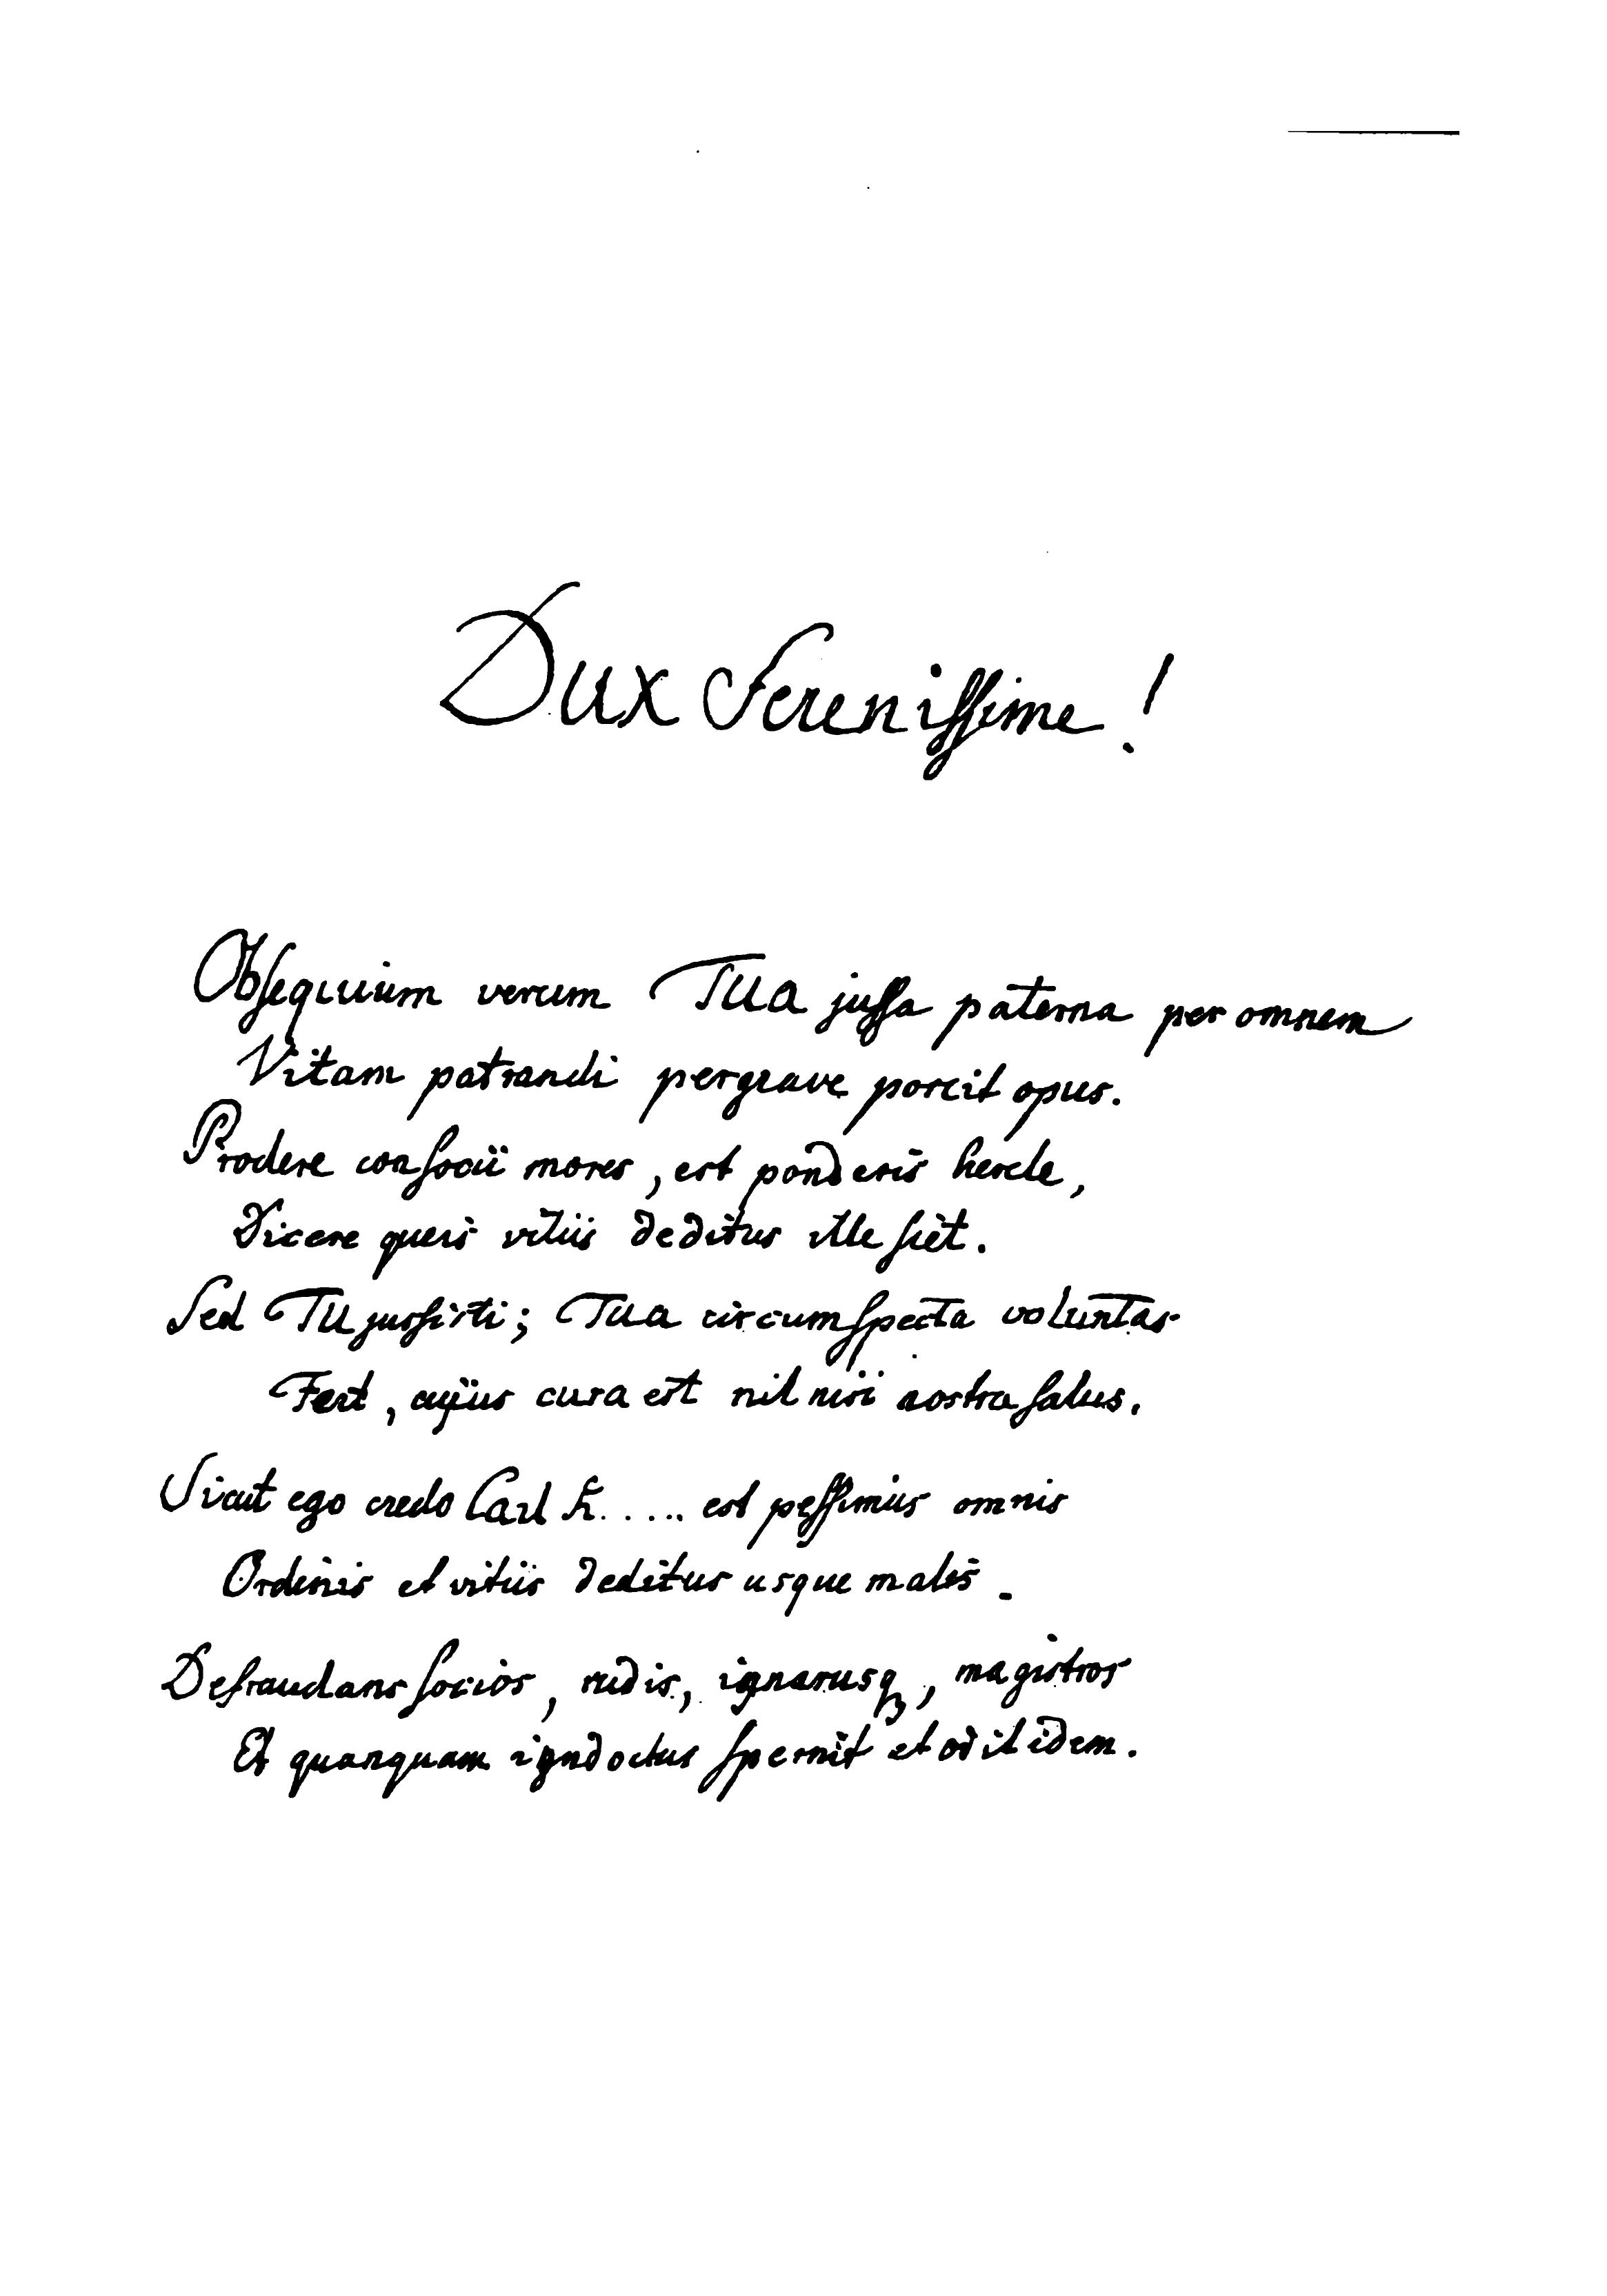 Dux Serenissime!
Obsequium verum TUA jussa paterna per omnem
Vitam patrandi pergrave porcit opus.
Prodere consocii mores, est ponderis hercle,
Dicere queis vitiis deditus ille siet.
Sed TU jussisti; TUA circumspecta voluntas
Fert, cujus cura est nil nisi nostra salus.
Sicut ego credo Carl K..... est pessimus omnis
Ordinis et vitiis deditus usque malis.
Defraudans socios, rudis, ignarusq, magistros
Et quanquam spernit et odit idem.